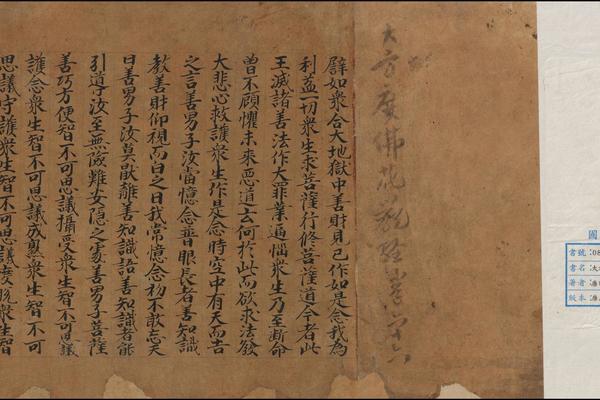 大方廣佛花嚴經卷六十六
譬如衆合大地獄中善財見已作如是念我為
利益一切衆生求菩薩行修菩薩道今者此
王滅諸善法作大罪業逼惱衆生乃至斷命
曾不顧懼未來惡道云何於此而欲求法發
大悲心救護衆生作是念時空中有天而告
之言善男子汝當憶念普眼長者善知識
教善財仰視而白之曰我常憶念初不敢忘天
曰善男子汝莫猒離善知識語善知識者能
引導汝至無險難安隱之處善男子菩薩
善巧方便智不可思議攝受衆生智不可思議
護念衆生智不可思議成熟衆生智不可
思議守護衆生智不可思議度脫衆生智
國
書號:08
書名:大
著者:
版本: